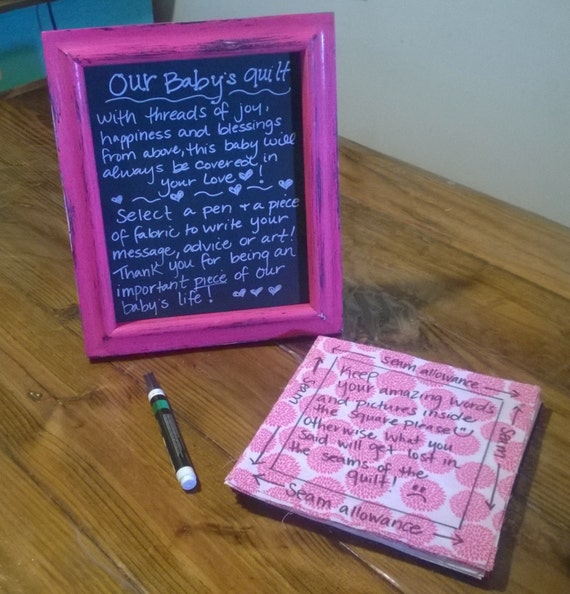 Our Baby's quilt
With threads of joy,
happiness and blessings
from above, this baby will
always be covered in
your love!
Select a pen + a piece
of fabric to write your
message, advice or art!
Thank you for being an
important piece of our
baby's life!
Seam allowance
Seam
Keep
your amazing words
and pictures inside
the square please!
otherwise what you
said will get lost in
the seams of the
quilt!
Seam
Seam allowance